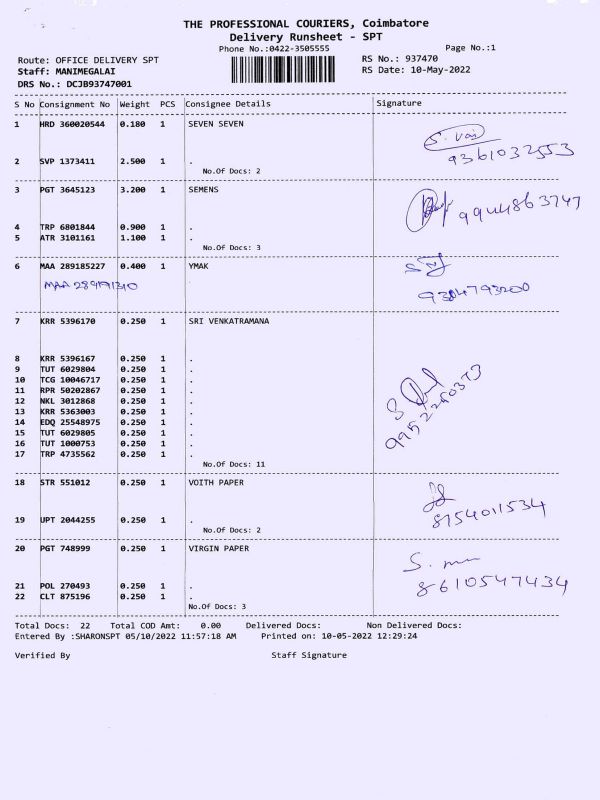 THE PROFESSIONAL COURIERS, Coimbatore
Delivery Runsheet - SPT
Phone No.:0422-3505555
Page No.:1
Route: OFFICE DELIVERY SPT
RS No.: 937470
Staff: MANIMEGALAI
RS Date: 10-May-2022
DRS No.: DCJB93747001
S No Consignment No Weight PCS Consignee Details Signature
1 HRD 360020544 0.180 1 SEVEN SEVEN
9361032553
2 SVP 1373411 2.500 1 .
No.Of Docs: 2
3 PGT 3645123 3.200 1 SEMENS
9944863747
4 TRP 6801844 0.900 1 .
5 ATR 3101161 1.100 1 .
No.Of Docs: 3
6 MAA 289185227 0.400 1 YMAK
MAA 289191310
7 KRR 5396170 0.250 1 SRI VENKATRAMANA
8 KRR 5396167 0.250 1 .
9 TUT 6029804 0.250 1 .
10 TCG 10046717 0.250 1 .
11 RPR 50202867 0.250 1 .
12 NKL 3012868 0.250 1 .
13 KRR 5363003 0.250 1 .
14 EDQ 25548975 0.250 1 .
15 TUT 6029805 0.250 1 .
16 TUT 1000753 0.250 1 .
17 TRP 4735562 0.250 1 .
No.Of Docs: 11
18 STR 551012 0.250 1 VOITH PAPER
8754011534
19 UPT 2044255 0.250 1 .
No.Of Docs: 2
20 PGT 748999 0.250 1 VIRGIN PAPER
8610547434
21 POL 270493 0.250 1 .
22 CLT 875196 0.250 1 .
No.Of Docs: 3
Total Docs: 22 Total COD Amt: 0.00 Delivered Docs: Non Delivered Docs:
Entered By :SHARONSPT 05/10/2022 11:57:18 AM Printed on: 10-05-2022 12:29:24
Verified By Staff Signature